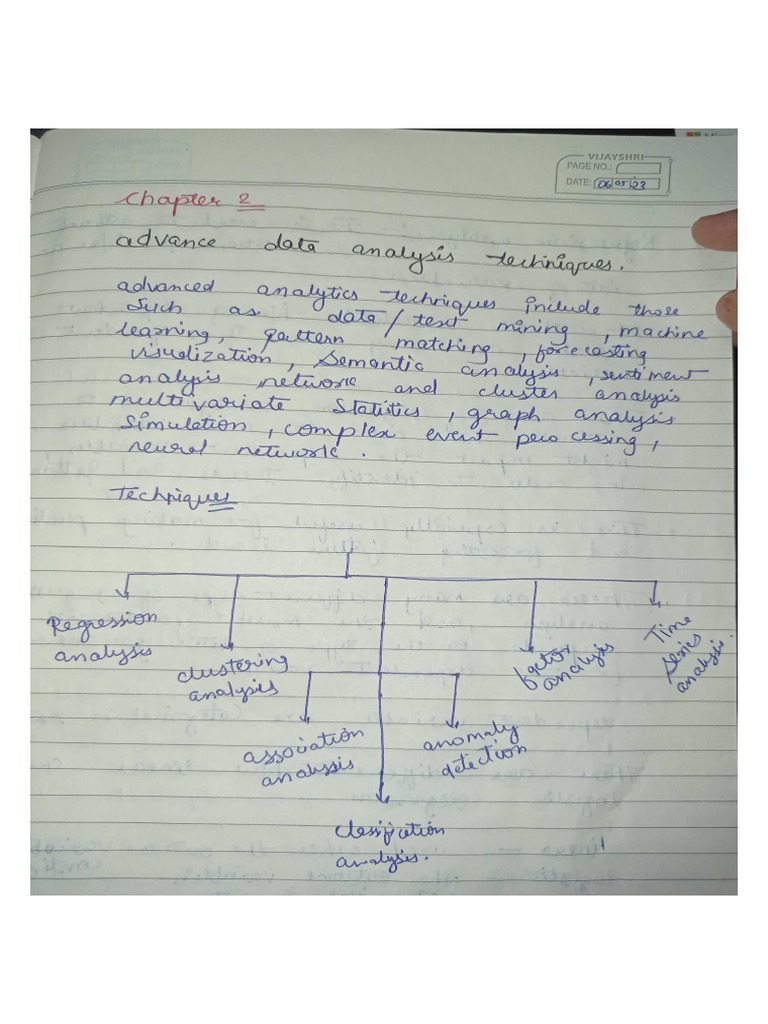 VIJAYSHRI
PAGE NO.:
DATE: 06/05/23
Chapter 2
advance data analysis techniques.
advanced analytics techniques include those
such as data/text mining, machine
learning, pattern matching, forecasting
visualization, semantic analysis, sentiment
analysis, network and cluster analysis
multivariate statistics, graph analysis
simulation, complex event processing,
neural network.
Techniques
Regression
analysis
clustering
analysis
factor
analysis
Time
series
analysis.
association
analysis
anomaly
detection
classification
analysis.